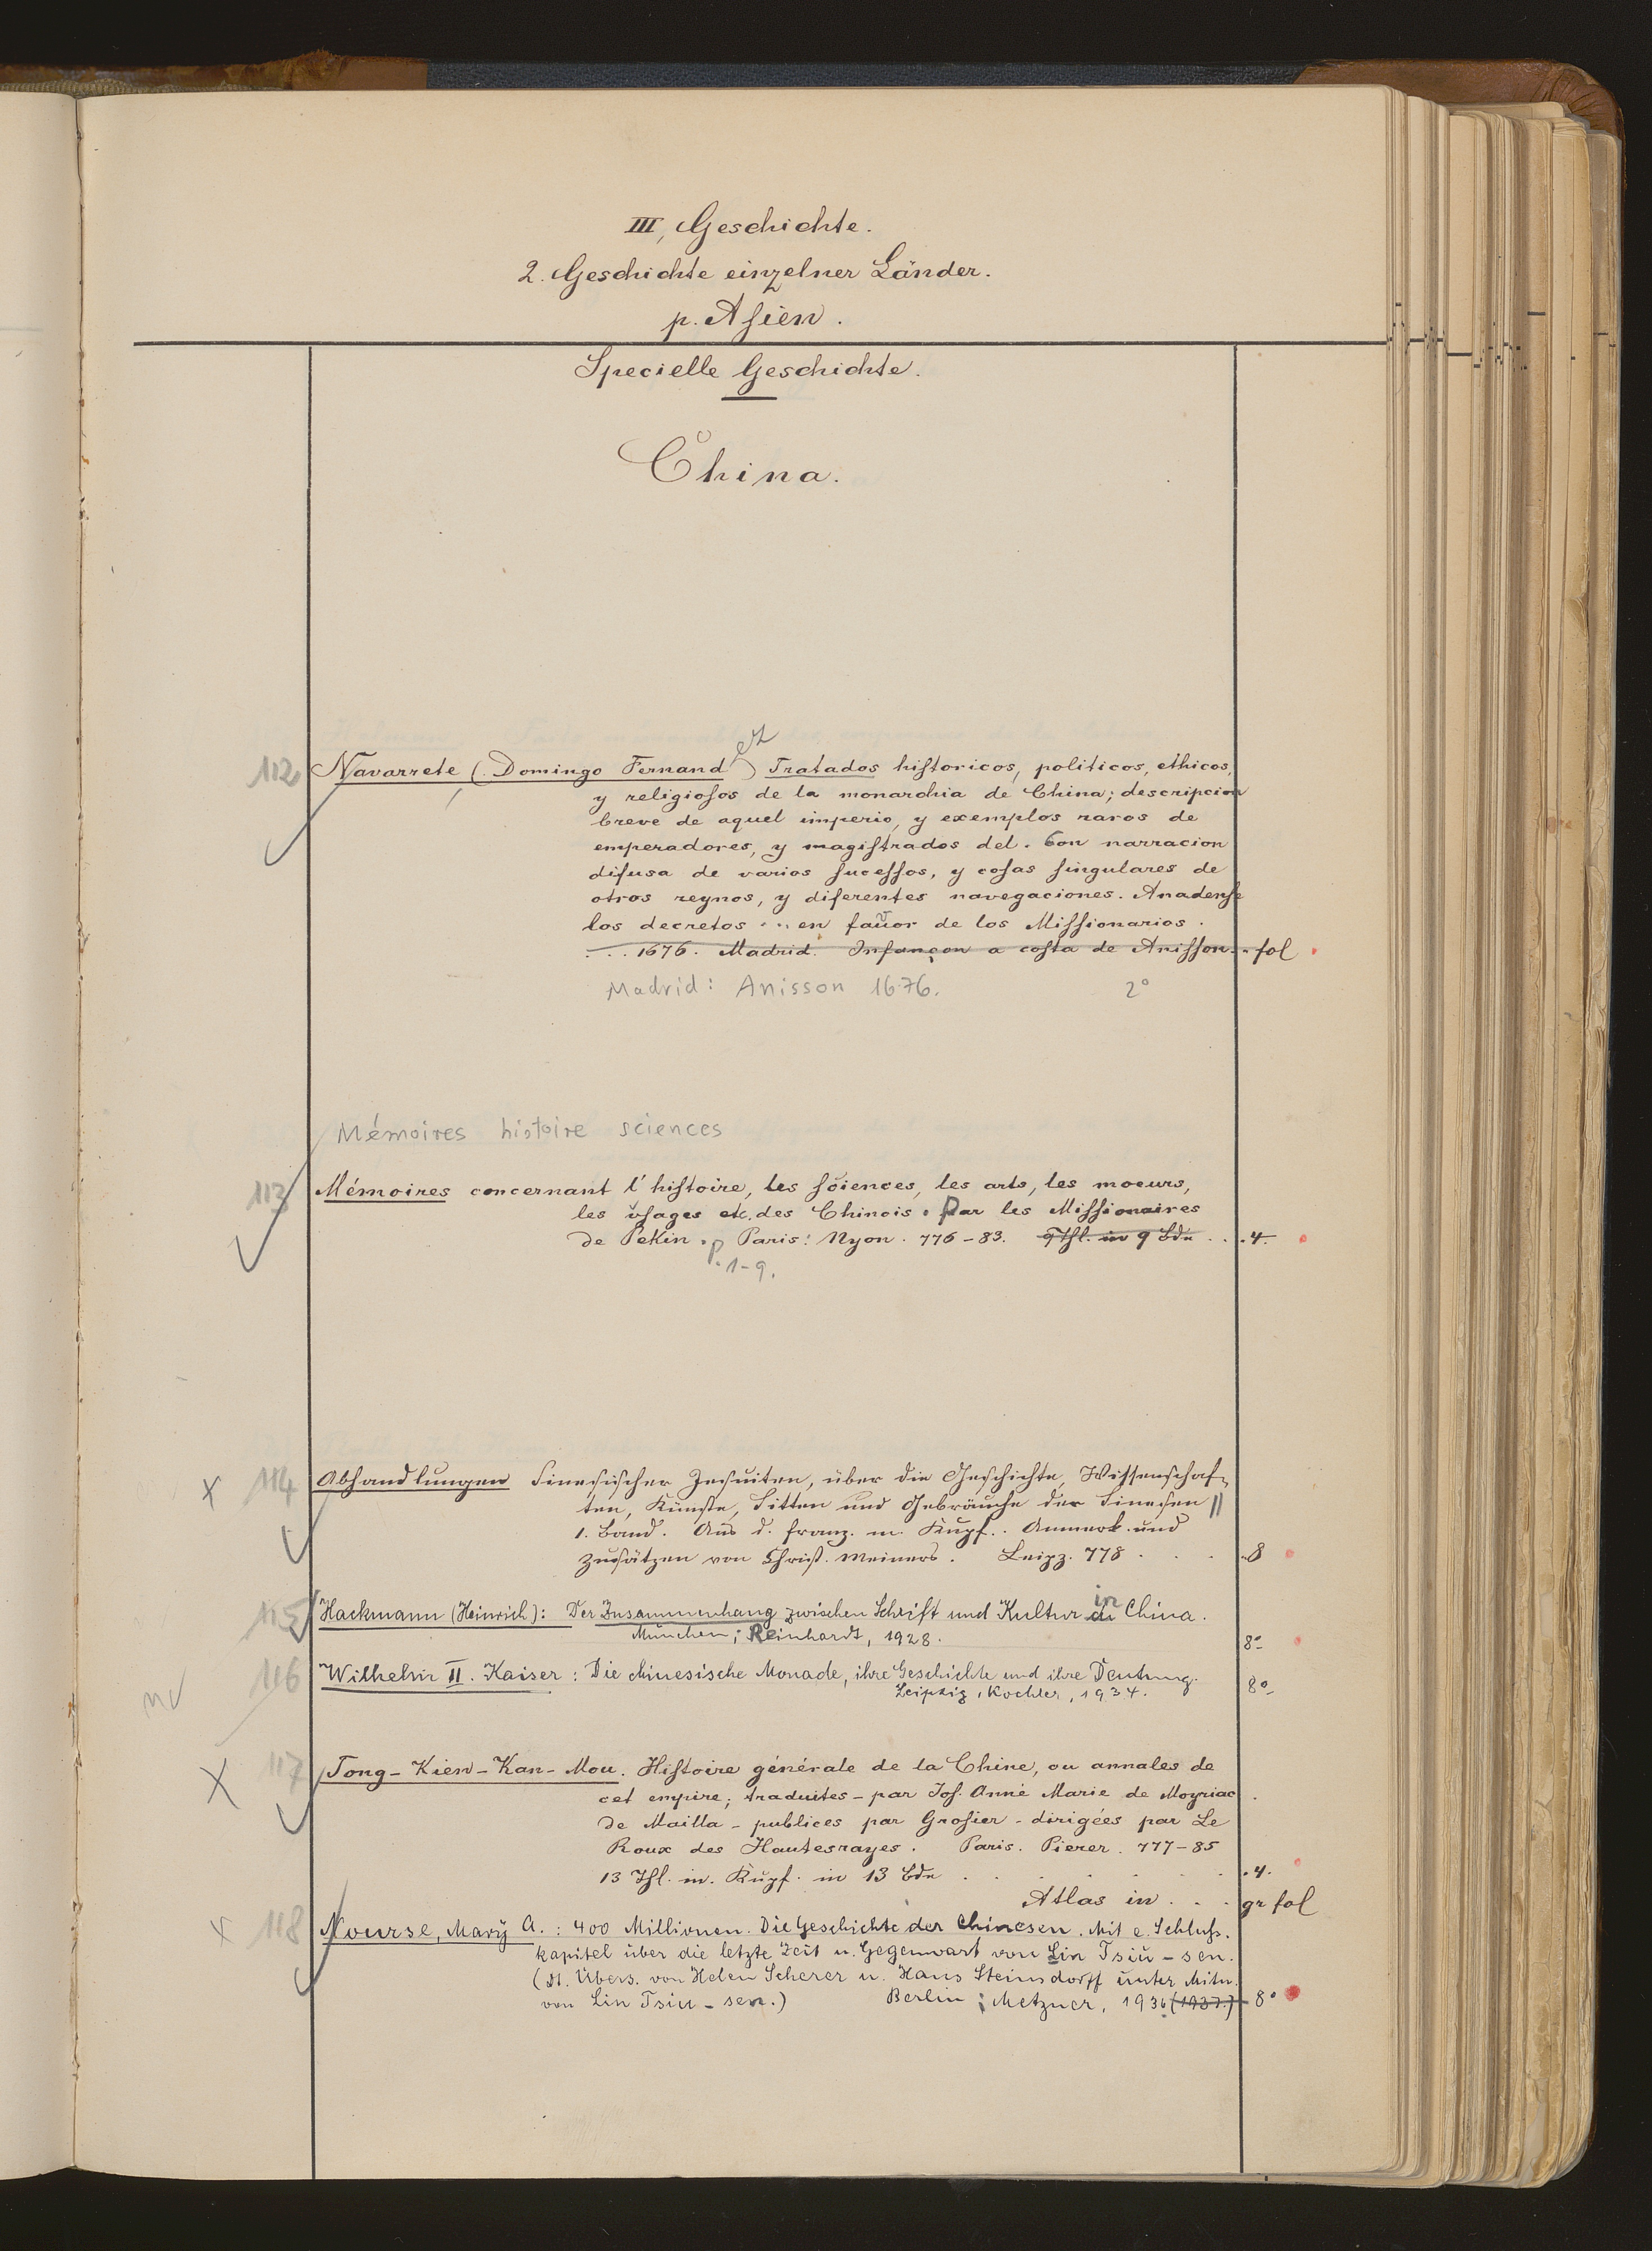 III, Geschichte.
2. Geschichte einzelner Länder.
p. Asien.
Specielle Geschichte.
China.
112 Navarrete, (Domingo Fernandez) Tratados historicos, politicos, ethicos,
y religiosos de la monarchia de China; descripcion
breve de aquel imperio, y exemplos raros de
emperadores, y magistrados del. Con narracion
difusa de varios sucessos, y cosas singulares de
otros reynos, y diferentes navegaciones. Anadense
los decretos ... en fauor de los Missionarios.
... 1676. Madrid. Infançon a costa de Anisson. fol
Madrid: Anisson 1676. 2°
Mémoires histoire sciences
113 Mémoires concernant l'histoire, les sciences, les arts, les moeurs,
les usages etc. des Chinois. Par les Missionaires
de Pekin. Paris: Nyon. 776-83. 9 Thl. in 9 Bdn . . . 4.
P. 1-9.
x 114 Abhandlungen Sinesischer Jesuiten, über die Geschichte, Wissenschaf-
ten, Künste, Sitten und Gebräuche der Sinesen ||
1. Band. Aus d. Franz. m. Kupf. Anmerk. und
Zusätzen von Christ. Meiners. Leipz. 778 . . . 8
115 Hackmann (Heinrich): Der Zusammenhang zwischen Schrift und Kultur in China.
München; Reinhardt, 1928. 8°
116 Wilhelm II. Kaiser: Die chinesische Monade, ihre Geschichte und ihre Deutung.
Leipzig, Koehler, 1934. 8°
x 117 Tong-Kien-Kan-Mou. Histoire générale de la Chine, ou annales de
cet empire; traduites - par Jos. Anne Marie de Moyriac
de Mailla - publices par Grosier - dirigées par Le
Roux des Hautesrayes. Paris. Pierer. 777-85
13 Thl. m. Kupf. in 13 Bdn . . . 4.
Atlas in . . . gr fol
x 118 Nourse, Mary A.: 400 Millionen. Die Geschichte der Chinesen. Mit e. Schluß-
kapitel über die letzte Zeit u. Gegenwart von Lin Tsiu-sen.
(Dt. Übers. von Helen Scherer u. Hans Steinsdorff unter Mitw.
von Lin Tsiu-sen.) Berlin; Metzner, 1936 (1937.) 8°